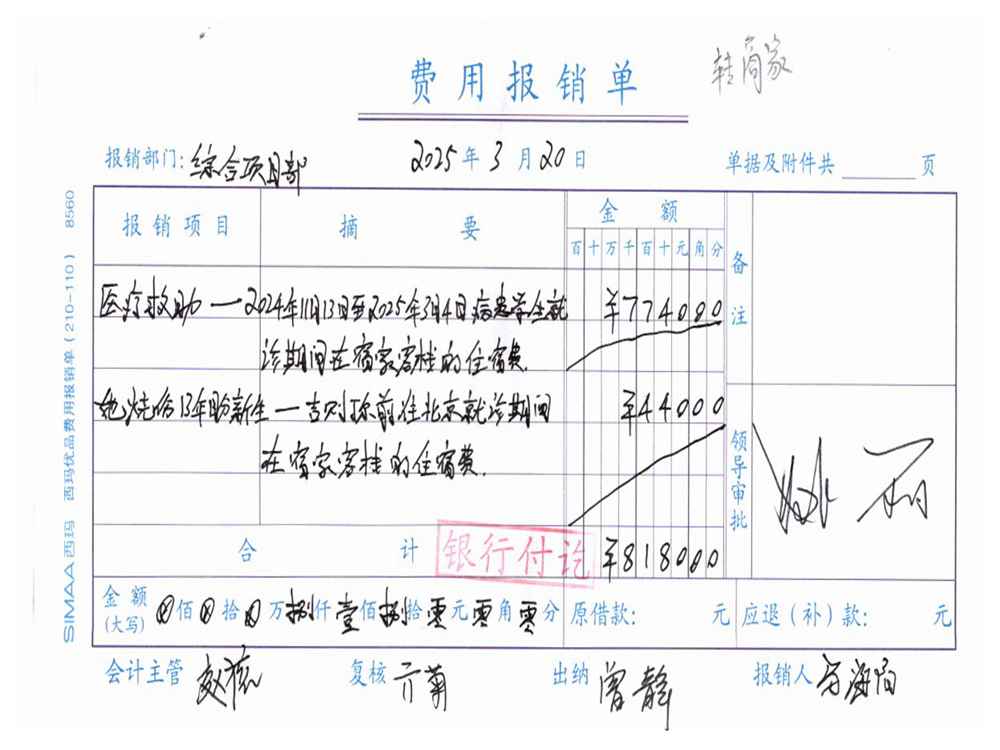 转商家
费用报销单
报销部门: 综合项目部 2025年3月20日 单据及附件共 页
报销项目 摘要 金额 备注
百十万千百十元角分
医疗救助 — 2024年11月13日至2025年3月4日病患学生就 ¥774000
诊期间在宿家客栈的住宿费.
13年 新生 — 前往北京就诊期间 ¥44000
在宿家客栈的住宿费.
领导审批
合计 银行付讫 ¥818000
金额(大写) ⊗佰⊗拾⊗万捌仟壹佰捌拾零元零角零分 原借款: 元 应退(补)款: 元
会计主管 复核 出纳 曾静 报销人 马海
SIMAA西玛 西玛优品费用报销单(210-110) 8560